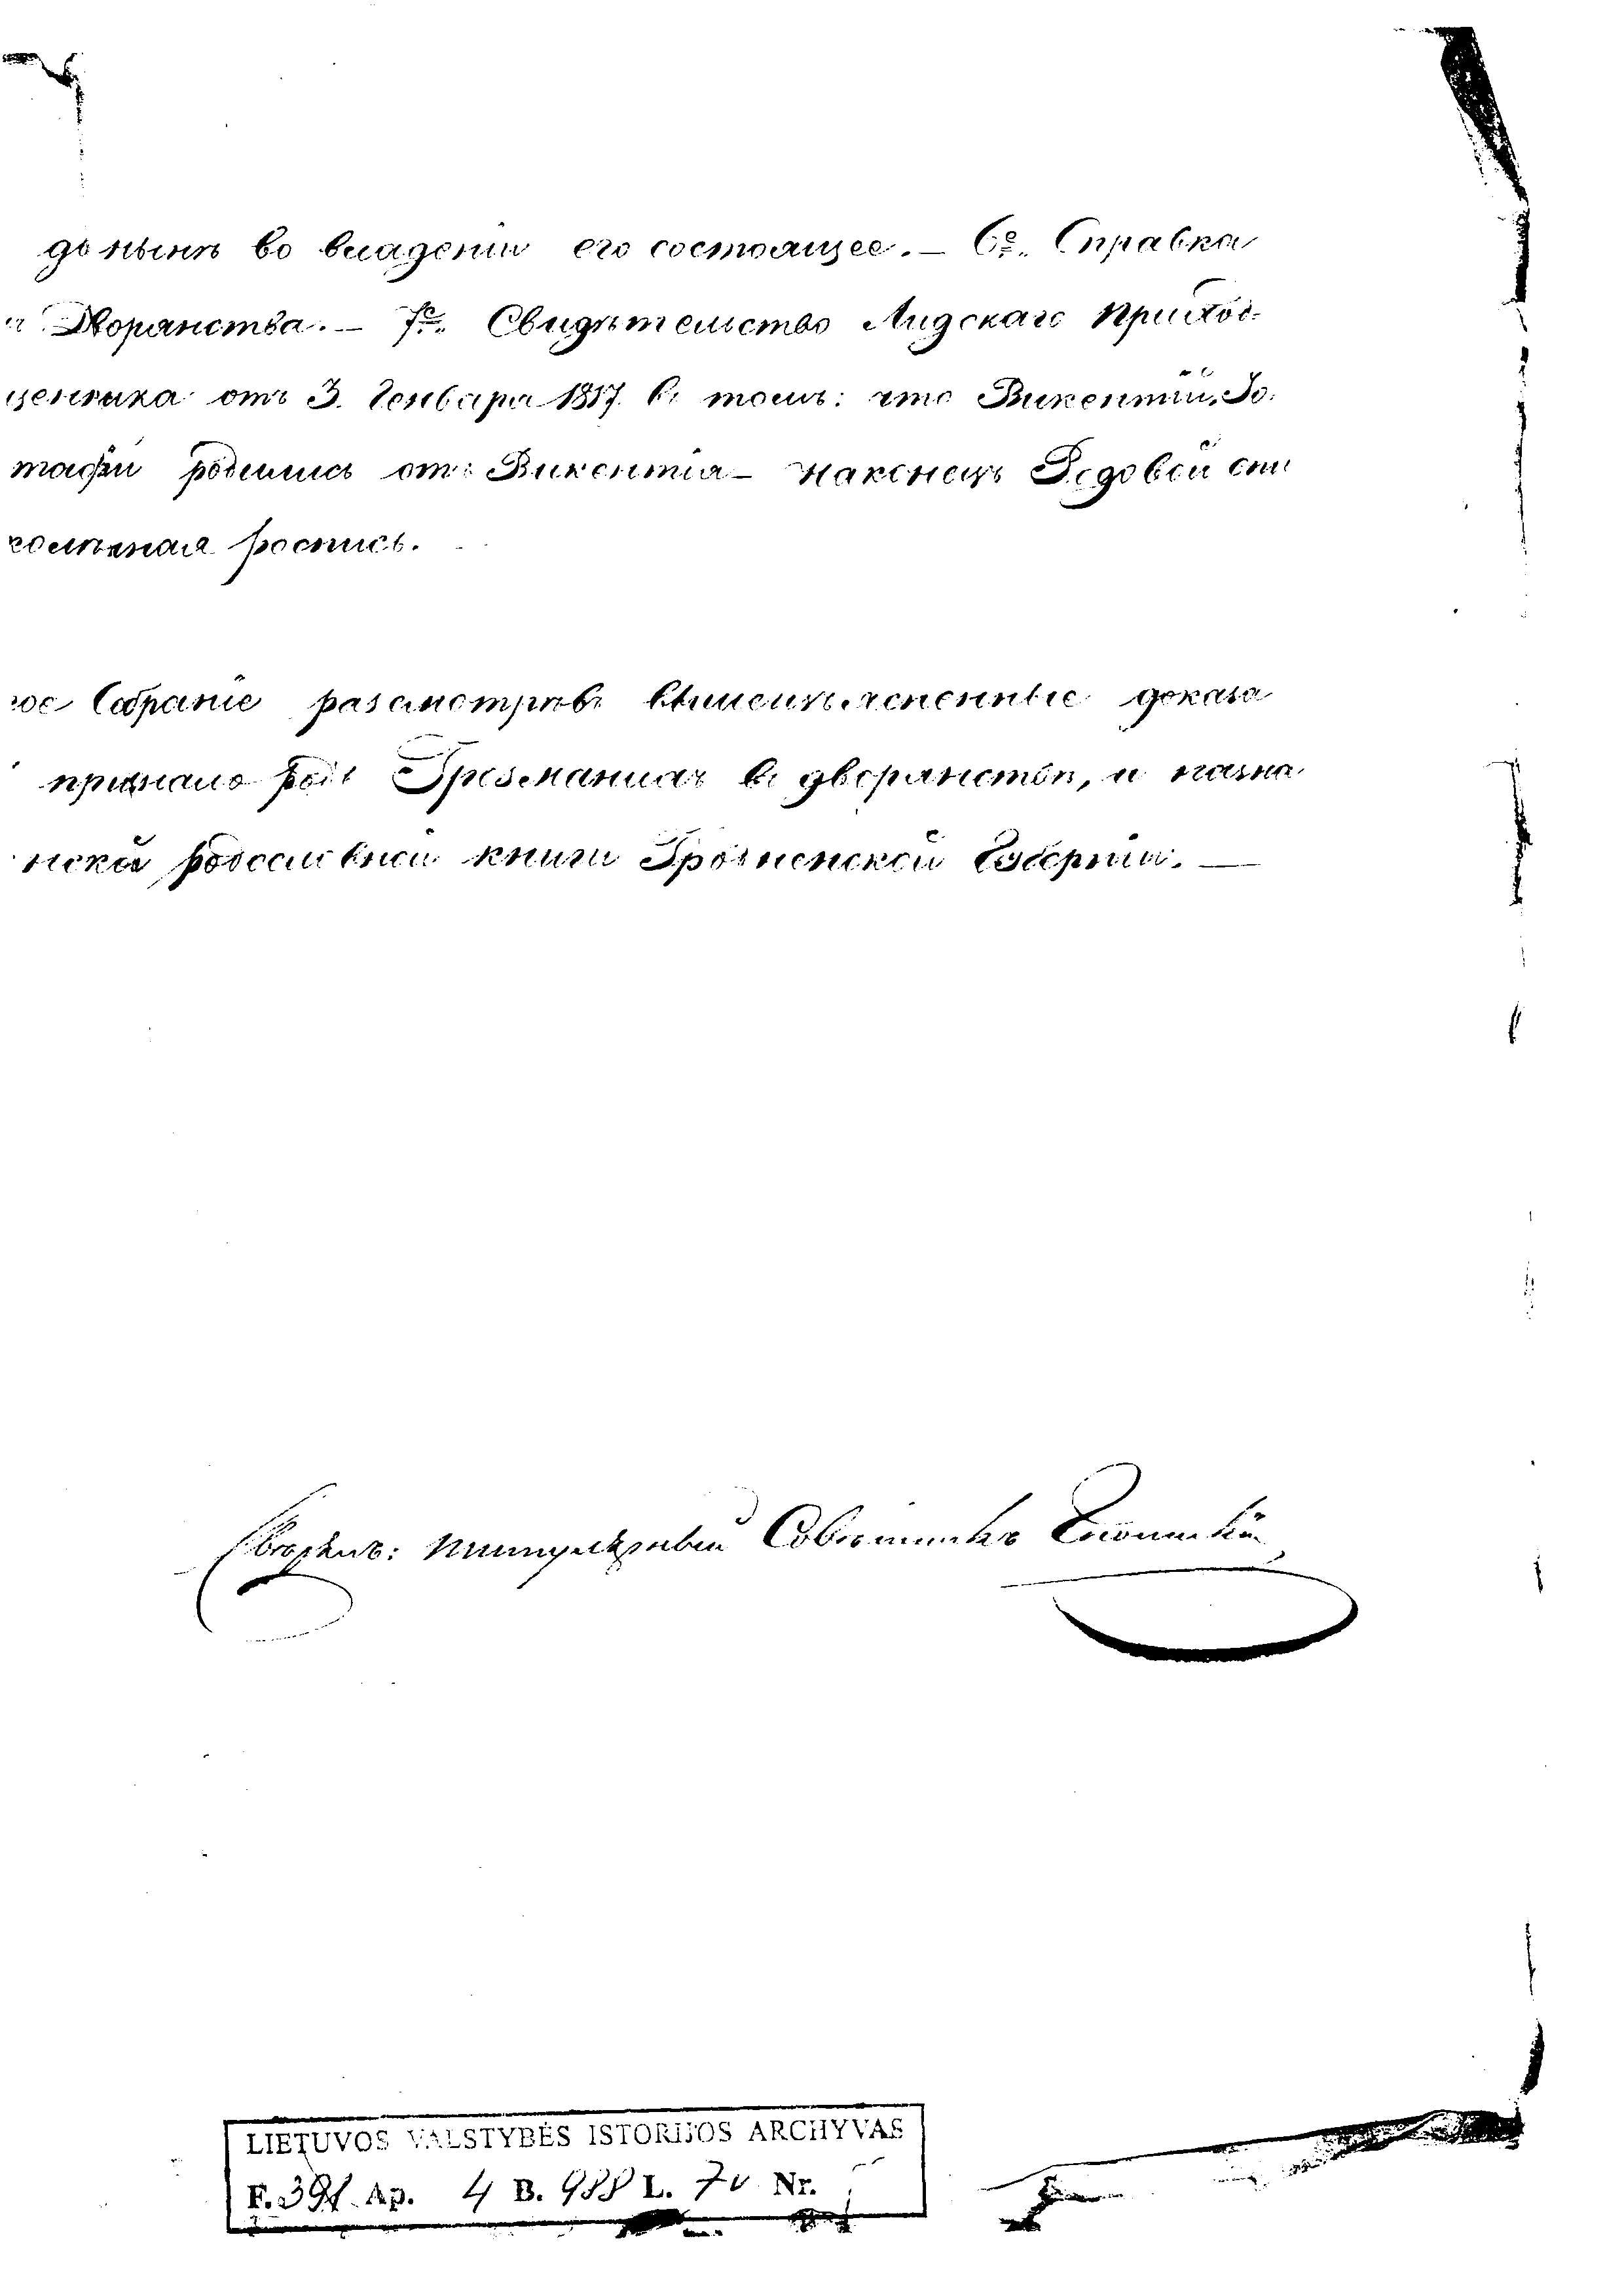 донынѣ во владеніи его состоящее. — 6е. Справка
Дворянства. — 7е. Свидѣтельство Лидскаго Приход-
щенника отъ 3. Генваря 1817. въ томъ: что Викентій, Іо.
тафій родились отъ Викентія — наконецъ Родовой спи
роспись.
ное Собраніе разсмотрѣвъ вышеизъясненные доказа
признало родъ въ дворянствѣ, и назна
нской родословной книги Гродненской Губерніи. —
Свѣрялъ: Титулярный Совѣтникъ
LIETUVOS VALSTYBĖS ISTORIJOS ARCHYVAS
F. 391 Ap. 4 B. 988 L. 7v Nr.